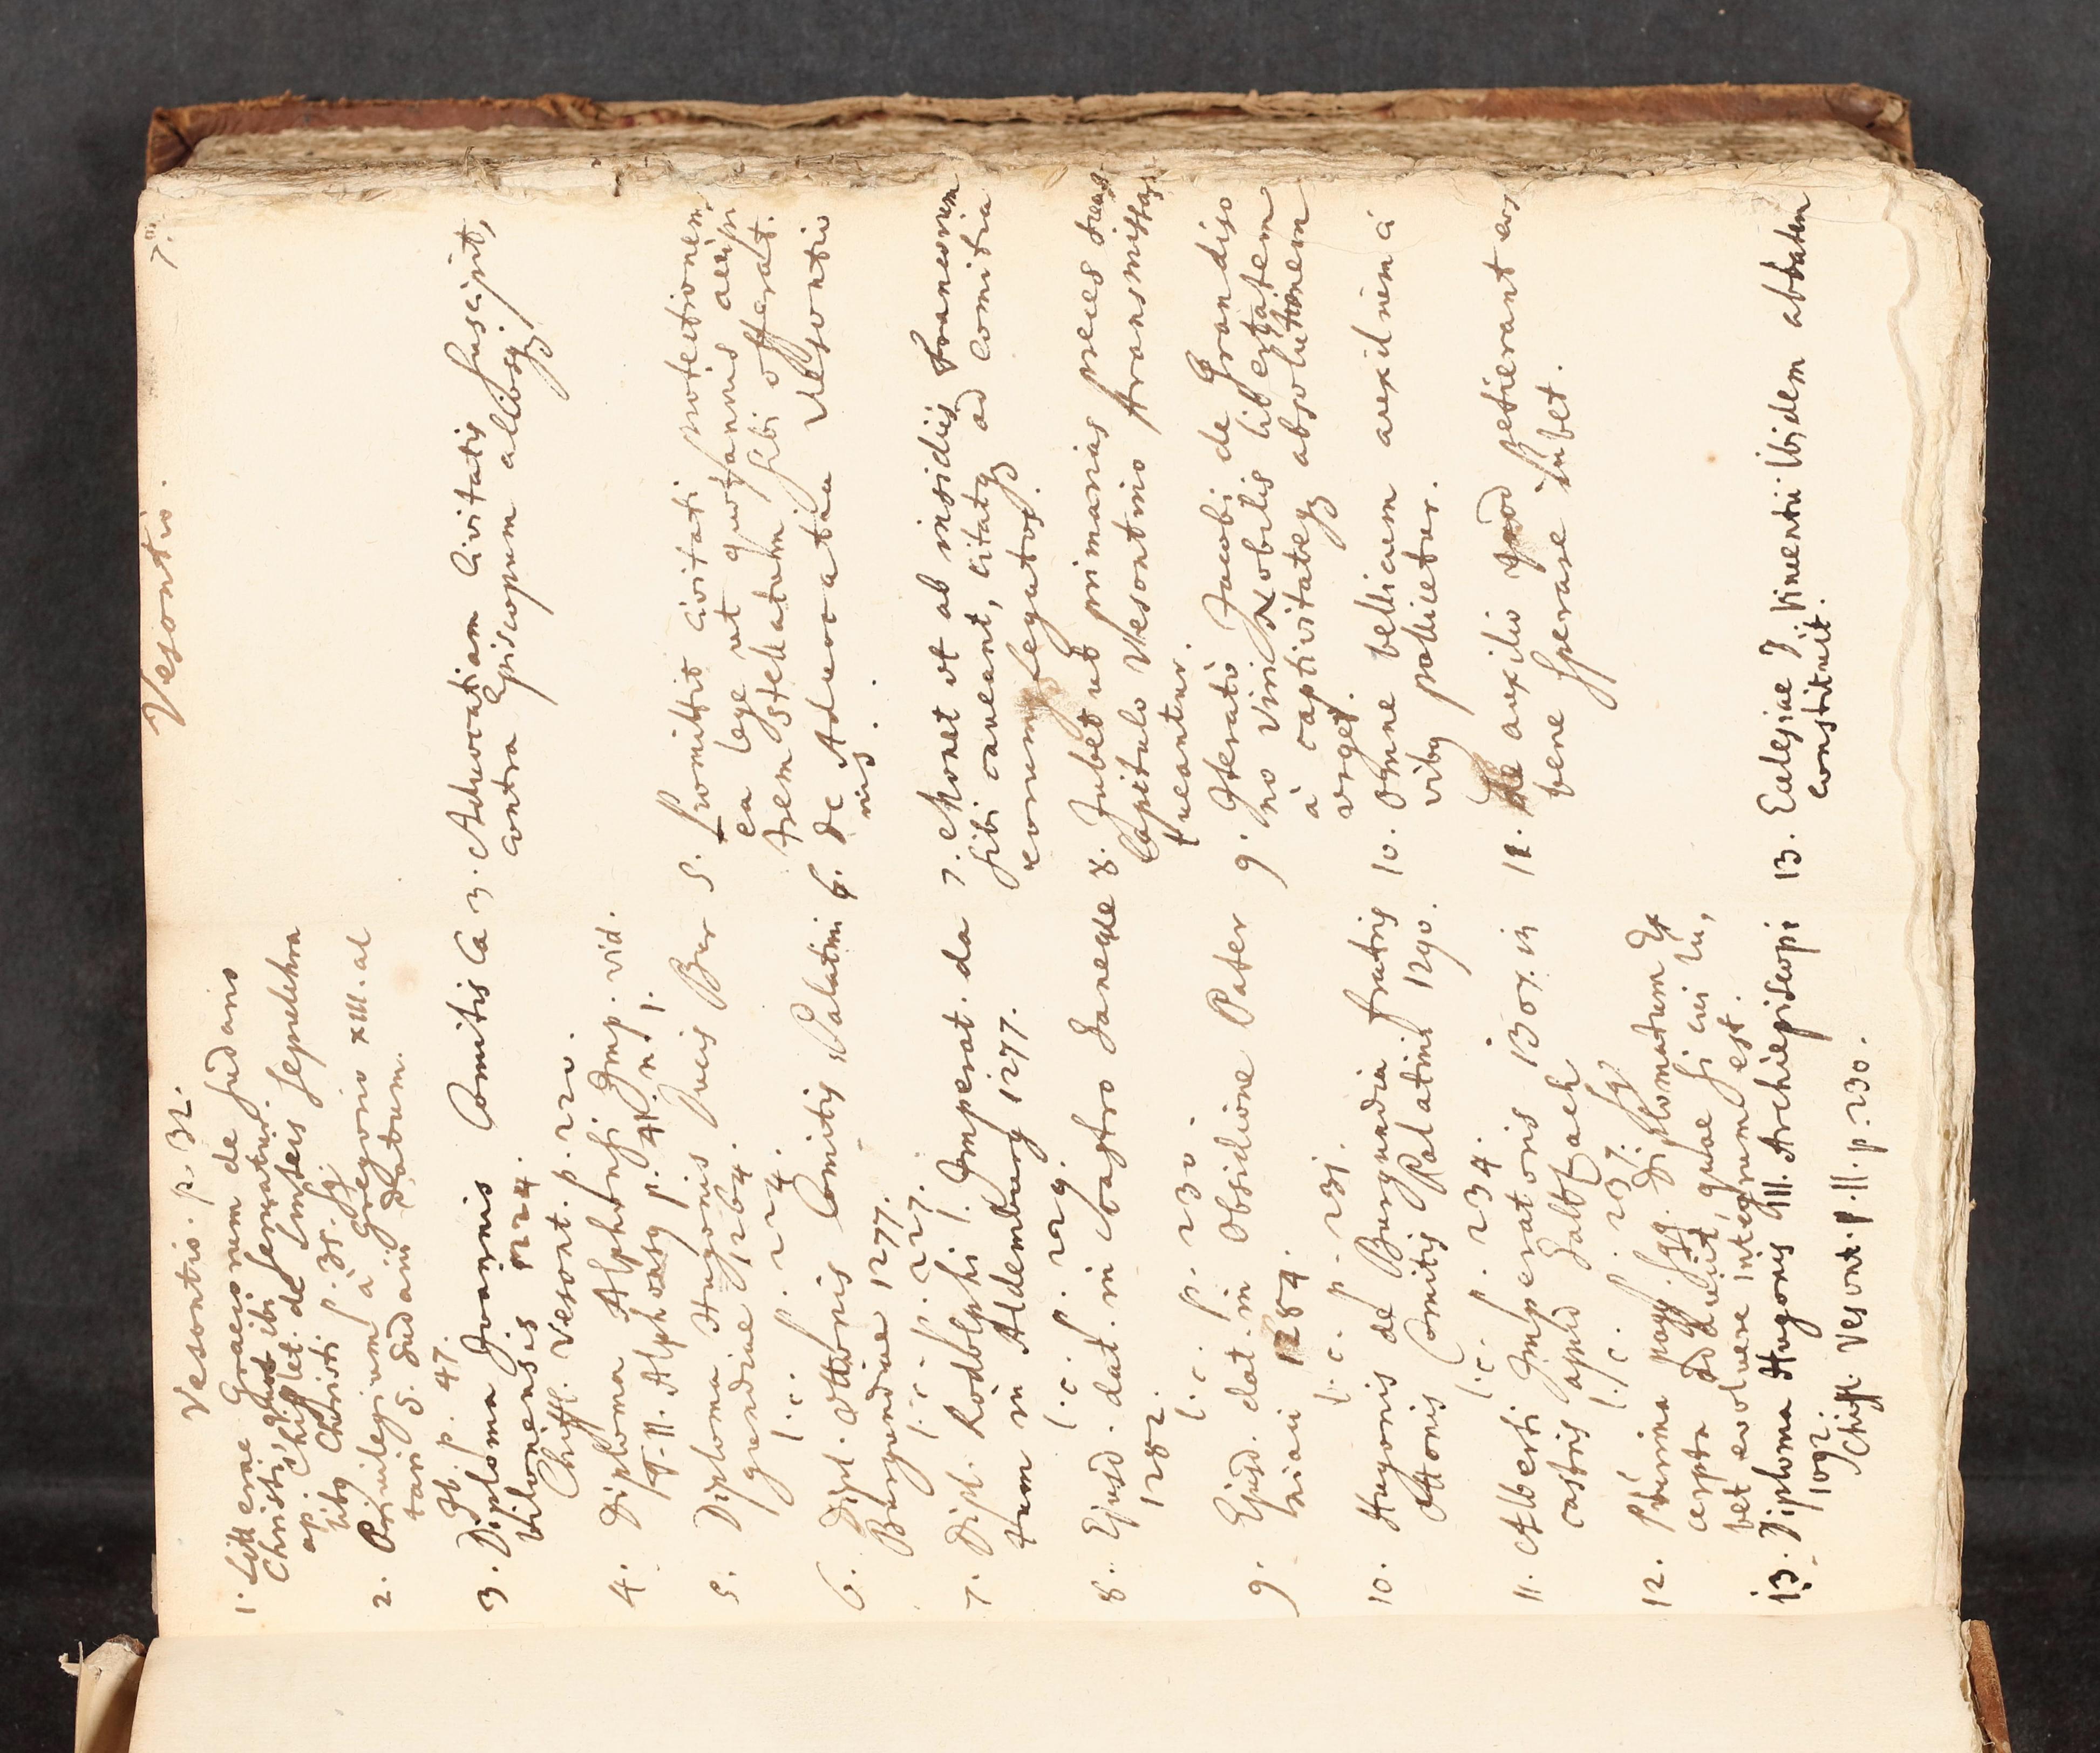 Vesontio. 7.
Vesontio. p. 32.
1. Litterae Graecorum de sudario
Christi, quod ibi servatur.
ap. Chifflet. de linteis sepulchra
lib9 Christi p. 35. sq.
2. Privilegium à Gregorio XIII. al
tari S. Sudarii datum.
Ib. p. 47.
3. Diploma Joannis Comitis Ca
bilonensis 1224.
Chiffl. Vesont. p. 220.
4. Diploma Alphonsi Imp. vid.
T. II. Alphonsg p. 41. n. 1.
5. Diploma Hugonis Ducis Bur
gundiae 1264.
l. c. p. 224.
6. Dipl. Ottonis Comitis Palatini
Burgundiae 1277.
l. c. p. 227.
7. Dipl. Rodolphi I. Imperat. da
tum in Aldemburg 1277.
l. c. p. 229.
8. Ejusd. dat. in Castro
1282.
l. c. p. 230.
9. Ejusd. dat. in Obsidione Pater
niaci 1284.
l. c. p. 231.
10. Hugonis de Burgundia fratris
Ottonis Comitis Palatini 1290.
l. c. p. 234.
11. Alberti Imperatoris 1307. in
castris apud Saltzach
l. c. p. 237.
12. Plurima pagg. sqq. Diplomatum Ex
cerpta adducit, quae si cui lu,
bet evolvere integrum est.
13. Diploma Hugonis III. Archiepiscopi
1092.
Chiffl. Vesont. P. II. p. 230.
3. Advocatiam Civitatis suscipit,
contra Episcopum alliosq.
5. Promittit civitati protectionem,
ea lege ut quotannis
sibi offerat.
6. De Advocatia Vesontio
nis.
7. Monet ut ab insidiis Francorum
sibi caveant, citatq ad Comitia
eorum legatos.
8. Jubet ut primarias preces suas
Capitulo Vesontino transmissas
tueantur.
9. Iterato Jacobi de Grandiso
no Viri Nobilis libertatem
à captivitateq absolutionem
urget.
10. Omne bellicum auxilium ci
vib9 pollicetur.
11. De auxilio quod petierant eos
bene sperare jubet.
13. Ecclesiae S. Vincentii Ibidem abbatem
constituit.